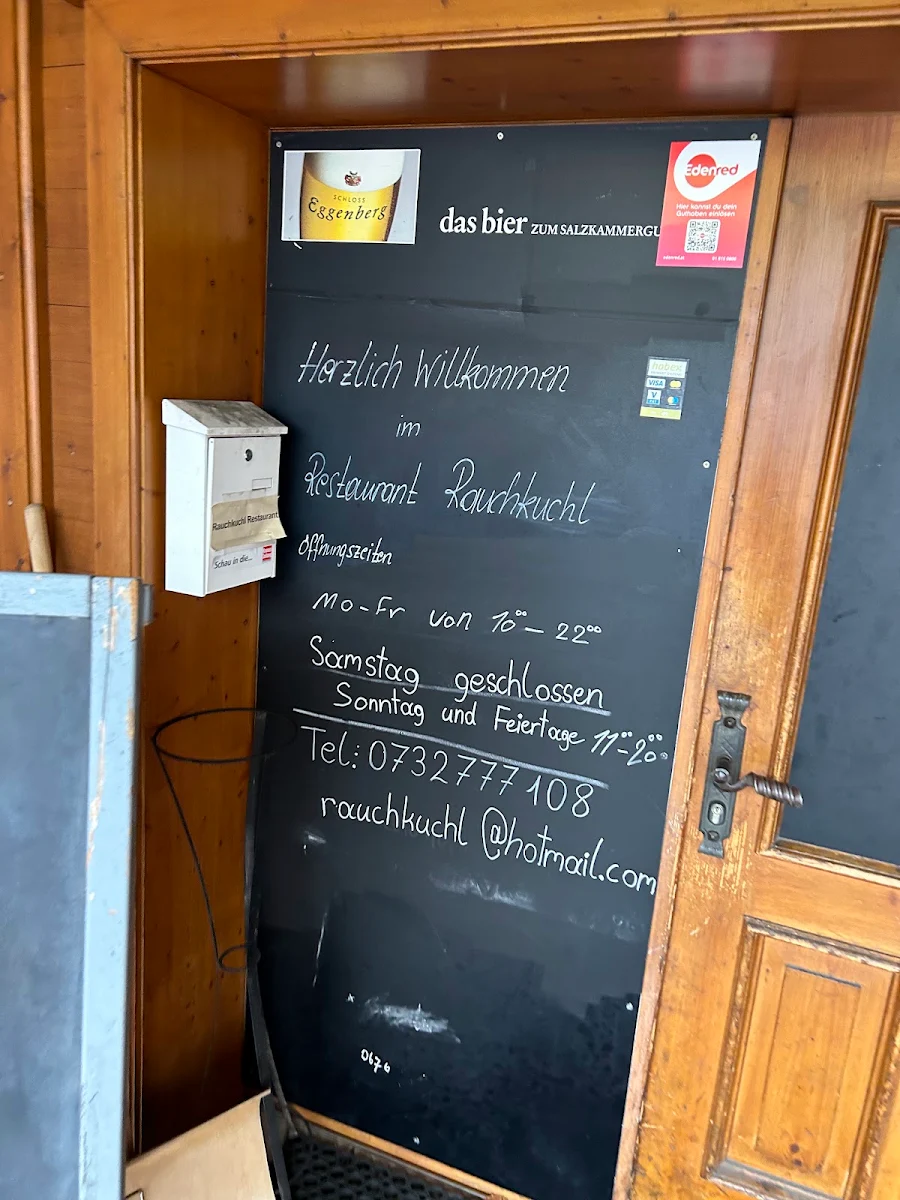 SCHLOSS
Eggenberg
das bier ZUM SALZKAMMERGU
Edenred
Hier kannst du dein
Guthaben einlösen
edenred.at
Herzlich Willkommen
im
Restaurant Rauchkuchl
hobex
VISA
V
Rauchkuchl Restaurant
Schau in die...
Öffnungszeiten
Mo-Fr von 10°° - 22°°
Samstag geschlossen
Sonntag und Feiertage 11°°-20°°
Tel: 0732 777 108
rauchkuchl@hotmail.com
0676